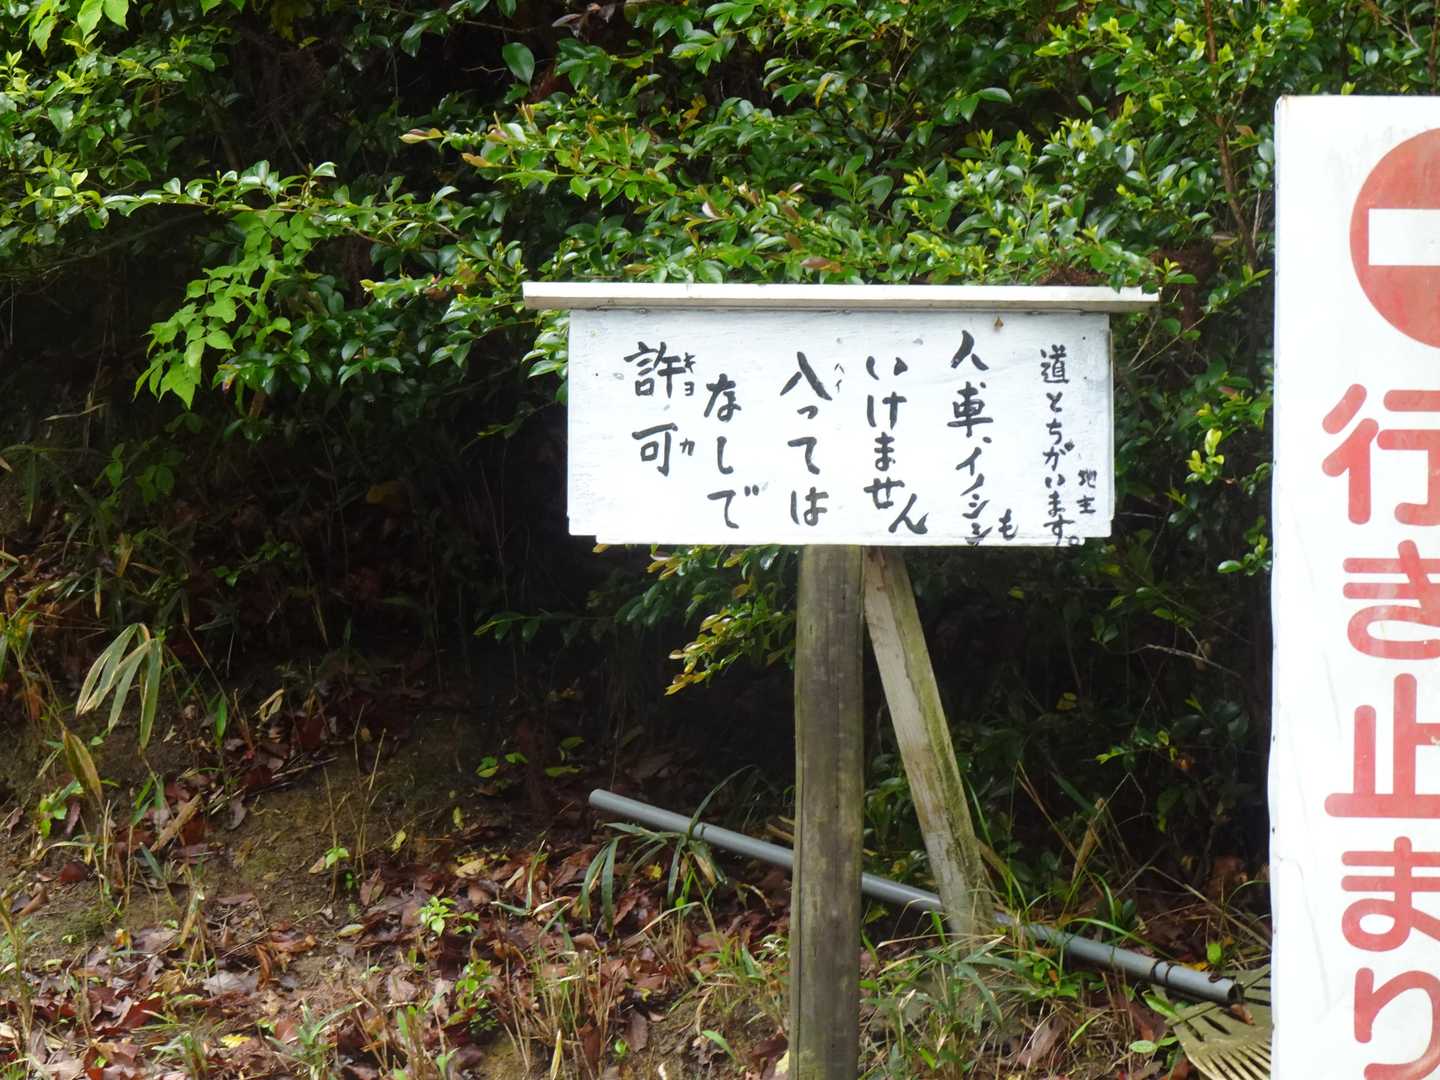 許可
キョカ
なしで
入っては
ハイ
いけません
人車、イノシシも
道とちがいます。
地主
行き止まり